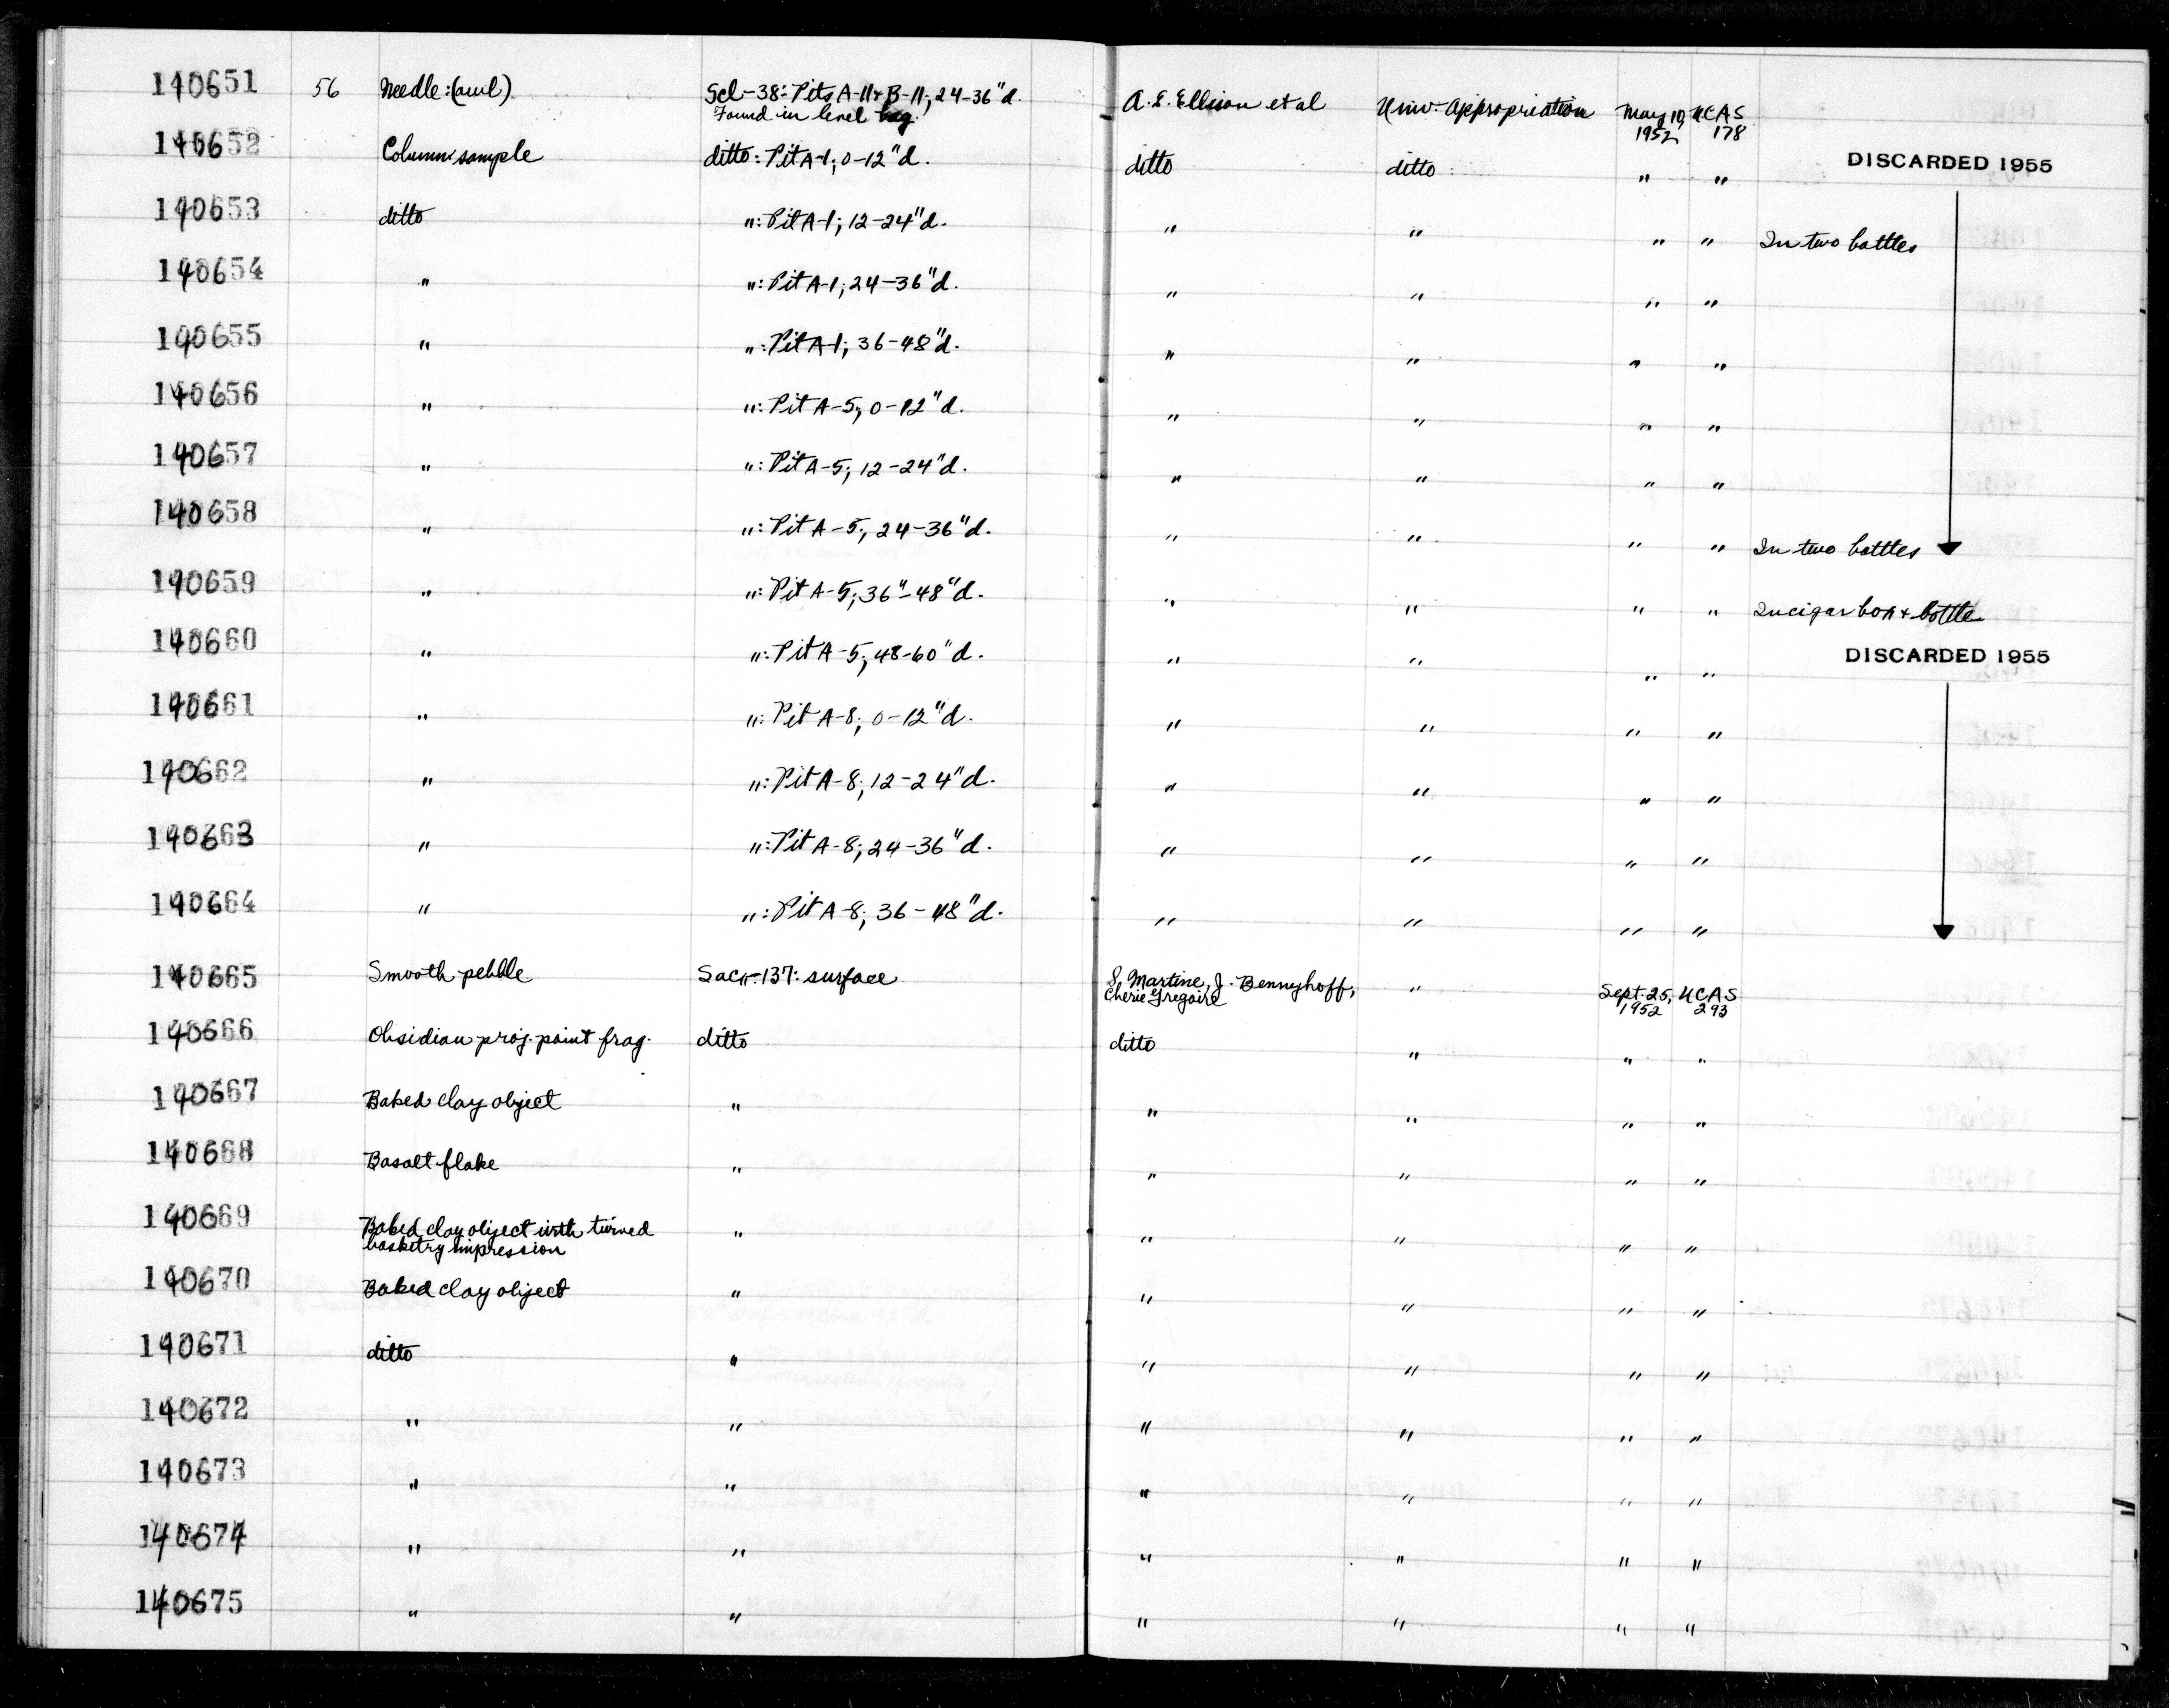 140651 56 Needle: (awl) Scl-38: Pits A-11 & B-11; 24-36"d. A. E. Ellison et al Univ. Appropriation May 10, UCAS
Found in level bag. 1952 178
140652 Column sample ditto: Pit A-1; 0-12"d. ditto ditto " " DISCARDED 1955
140653 ditto ": Pit A-1; 12-24"d. " " " " In two bottles
140654 " ": Pit A-1; 24-36"d. " " " "
140655 " ": Pit A-1; 36-48"d. " " " "
140656 " ": Pit A-5; 0-12"d. " " " "
140657 " ": Pit A-5; 12-24"d. " " " "
140658 " ": Pit A-5; 24-36"d. " " " " In two bottles
140659 " ": Pit A-5; 36"-48"d. " " " " In cigar box & bottle
140660 " ": Pit A-5; 48-60"d. " " " " DISCARDED 1955
140661 " ": Pit A-8; 0-12"d. " " " "
140662 " ": Pit A-8; 12-24"d. " " " "
140663 " ": Pit A-8; 24-36"d. " " " "
140664 " ": Pit A-8; 36-48"d. " " " "
140665 Smooth pebble Sac-137: surface S. Martine, J. Bennyhoff, " Sept. 25, UCAS
Cherie Gregoire 1952 293
140666 Obsidian proj. point frag. ditto ditto " " "
140667 Baked clay object " " " " "
140668 Basalt flake " " " " "
140669 Baked clay object with twined " " " " "
basketry impression
140670 Baked clay object " " " " "
140671 ditto " " " " "
140672 " " " " " "
140673 " " " " " "
140674 " " " " " "
140675 " " " " " "